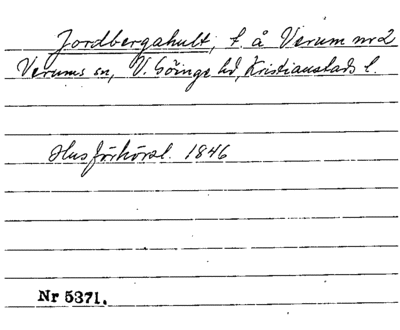 Jordbergahult, t. å Verum nr 2
Verums sn, V. Göinge hd, Kristianstads l.
Husförhörsl. 1846
Nr 5371.